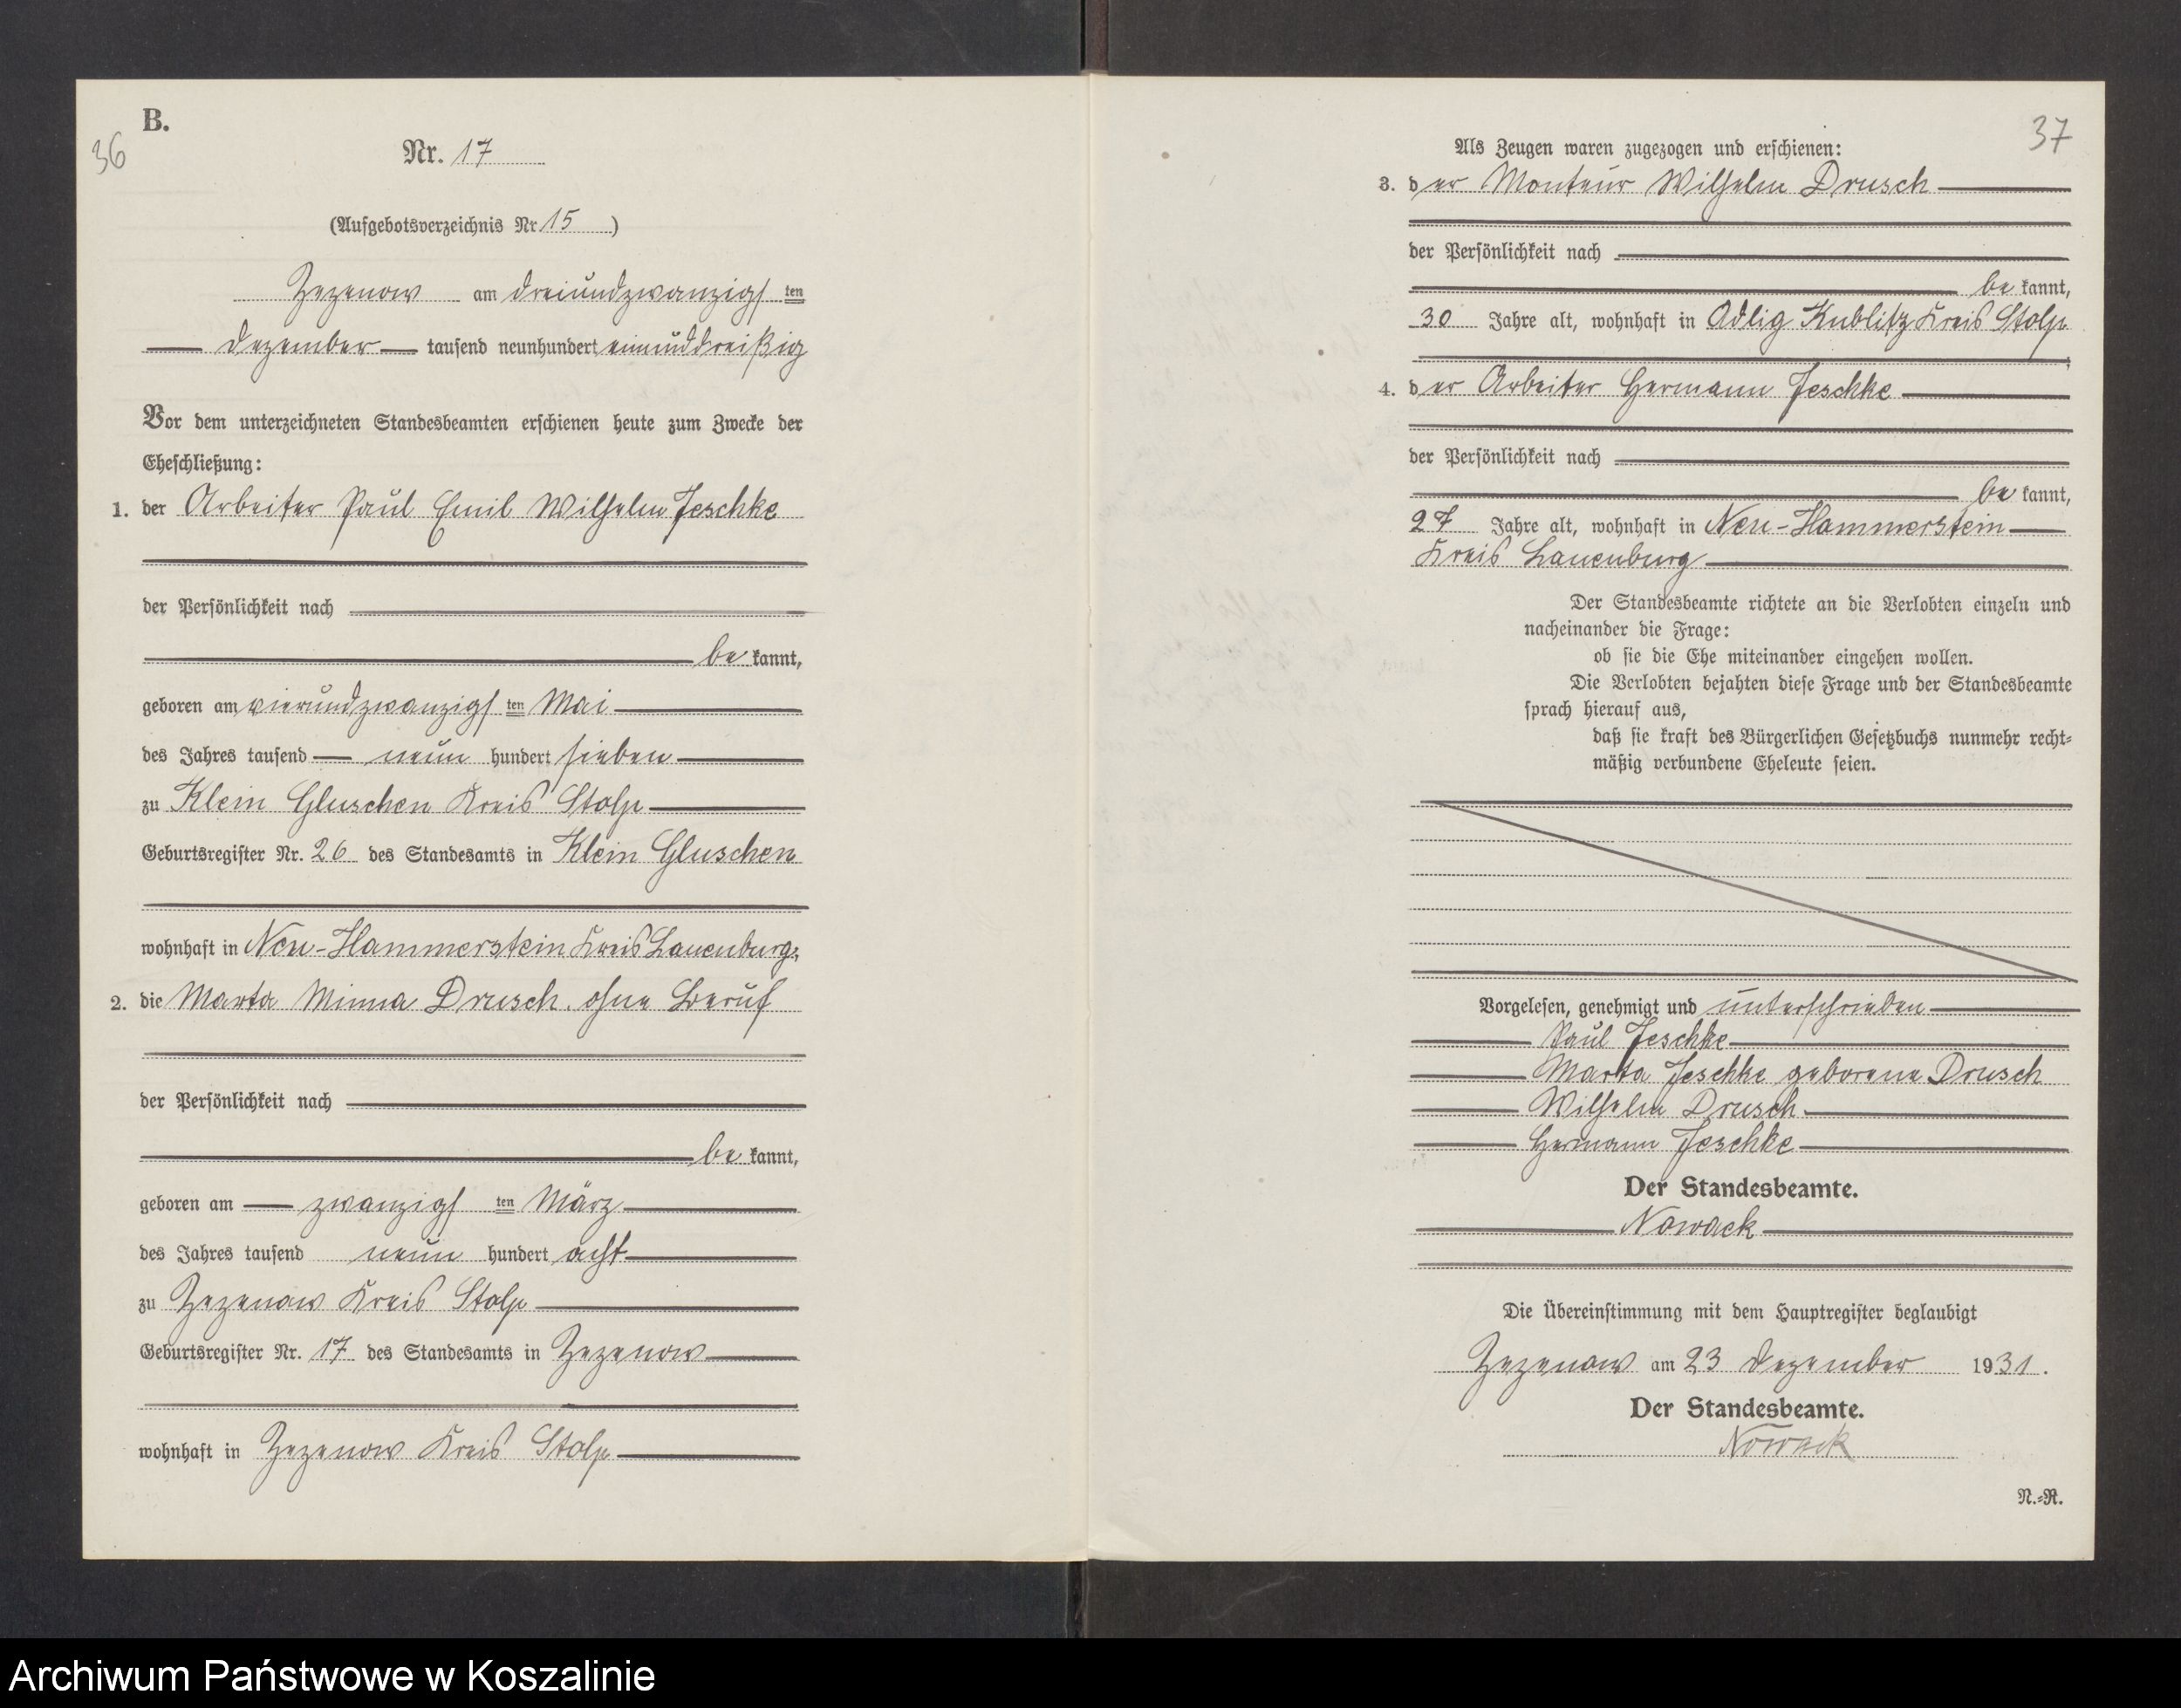 B.
36
Nr. 17
(Aufgebotsverzeichnis Nr. 15)
Zezenow am dreiundzwanzigsten
Dezember tausend neunhundert einunddreißig
Vor dem unterzeichneten Standesbeamten erschienen heute zum Zwecke der
Eheschließung:
1. der Arbeiter Paul Emil Wilhelm Jeschke
der Persönlichkeit nach
bekannt,
geboren am vierundzwanzigsten Mai
des Jahres tausend neunhundert sieben
zu Klein Gluschen Kreis Stolp
Geburtsregister Nr. 26 des Standesamts in Klein Gluschen
wohnhaft in Neu-Hammerstein Kreis Lauenburg;
2. die Marta Minna Drusch, ohne Beruf
der Persönlichkeit nach
bekannt,
geboren am zwanzigsten März
des Jahres tausend neunhundert acht
zu Zezenow Kreis Stolp
Geburtsregister Nr. 17 des Standesamts in Zezenow
wohnhaft in Zezenow Kreis Stolp
37
Als Zeugen waren zugezogen und erschienen:
3. der Monteur Wilhelm Drusch
der Persönlichkeit nach
bekannt,
30 Jahre alt, wohnhaft in Adlig Kublitz Kreis Stolp
4. der Arbeiter Hermann Jeschke
der Persönlichkeit nach
bekannt,
27 Jahre alt, wohnhaft in Neu-Hammerstein
Kreis Lauenburg
Der Standesbeamte richtete an die Verlobten einzeln und
nacheinander die Frage:
ob sie die Ehe miteinander eingehen wollen.
Die Verlobten bejahten diese Frage und der Standesbeamte
sprach hierauf aus,
daß sie kraft des Bürgerlichen Gesetzbuchs nunmehr recht-
mäßig verbundene Eheleute seien.
Vorgelesen, genehmigt und unterschrieben
Paul Jeschke
Marta Jeschke geborene Drusch
Wilhelm Drusch
Hermann Jeschke
Der Standesbeamte.
Nowack
Die Übereinstimmung mit dem Hauptregister beglaubigt
Zezenow am 23 Dezember 1931.
Der Standesbeamte.
Nowack
N.-R.
Archiwum Państwowe w Koszalinie